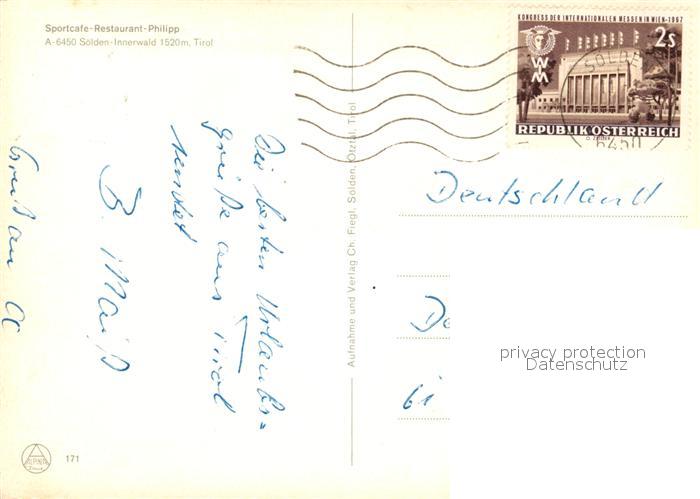 Sportcafe-Restaurant-Philipp
A-6450 Sölden-Innerwald 1520m, Tirol
KONGRESS DER INTERNATIONALEN MESSEN IN WIEN • 1967
2s
WM
REPUBLIK ÖSTERREICH
SÖLDEN
6450
Die besten Urlaubs=
grüße aus Tirol
sendet
B. Maiß
Gruß an
Aufnahme und Verlag Ch. Fiegl, Sölden, Ötztal, Tirol
Deutschland
privacy protection
Datenschutz
171